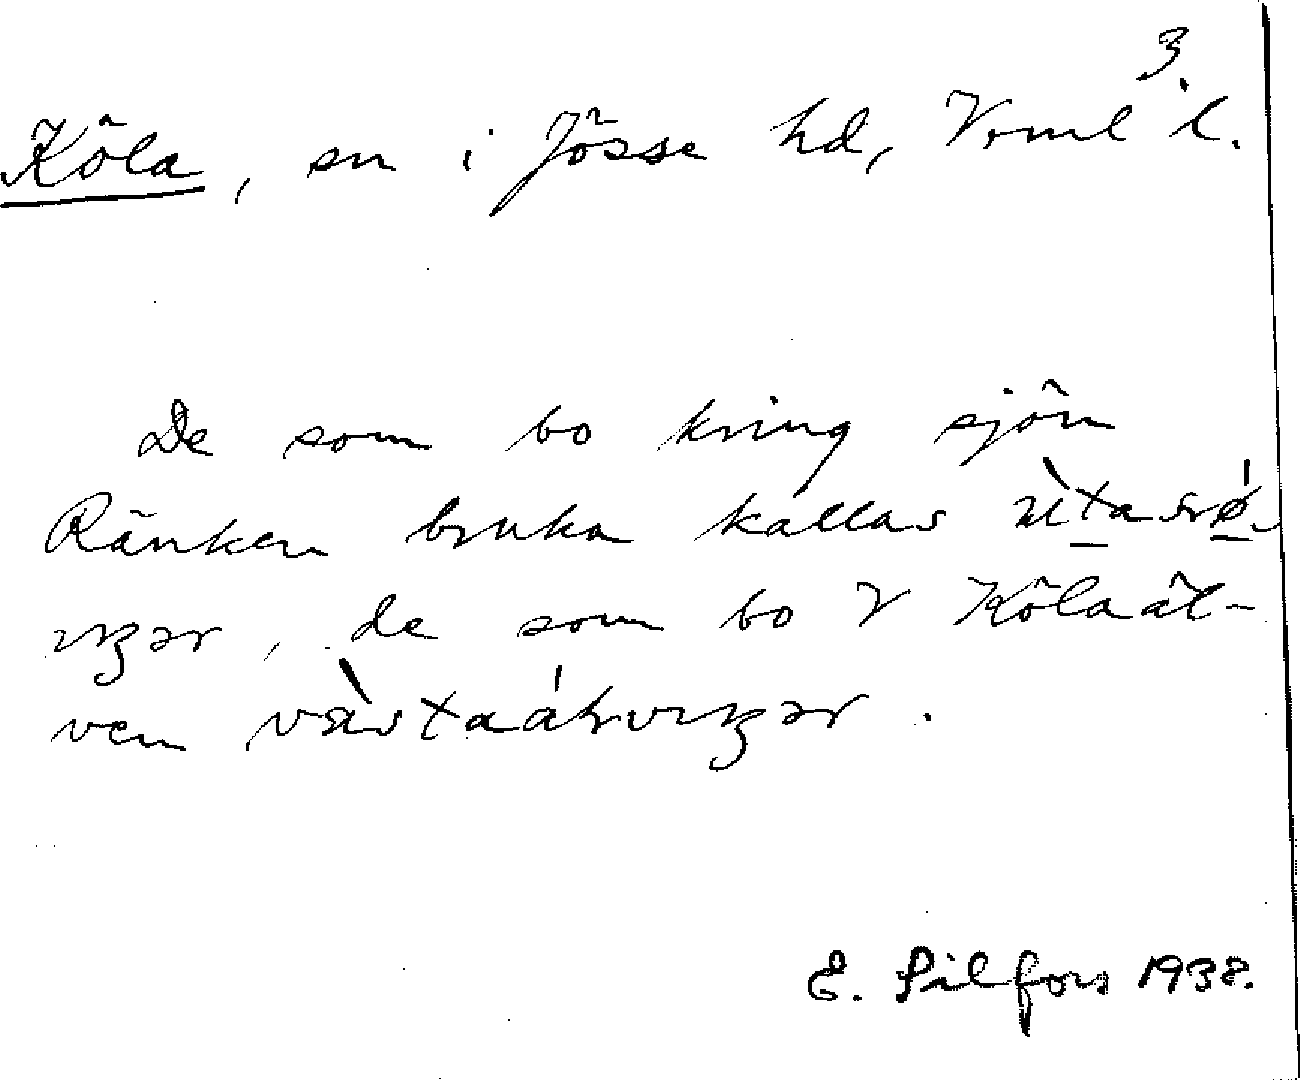 3.
Köla, sn i Jösse hd, Vrml l.
De som bo kring sjön
Ränken bruka kallas
, de som bo V Kölaäl-
ven
E. Pilfors 1938.